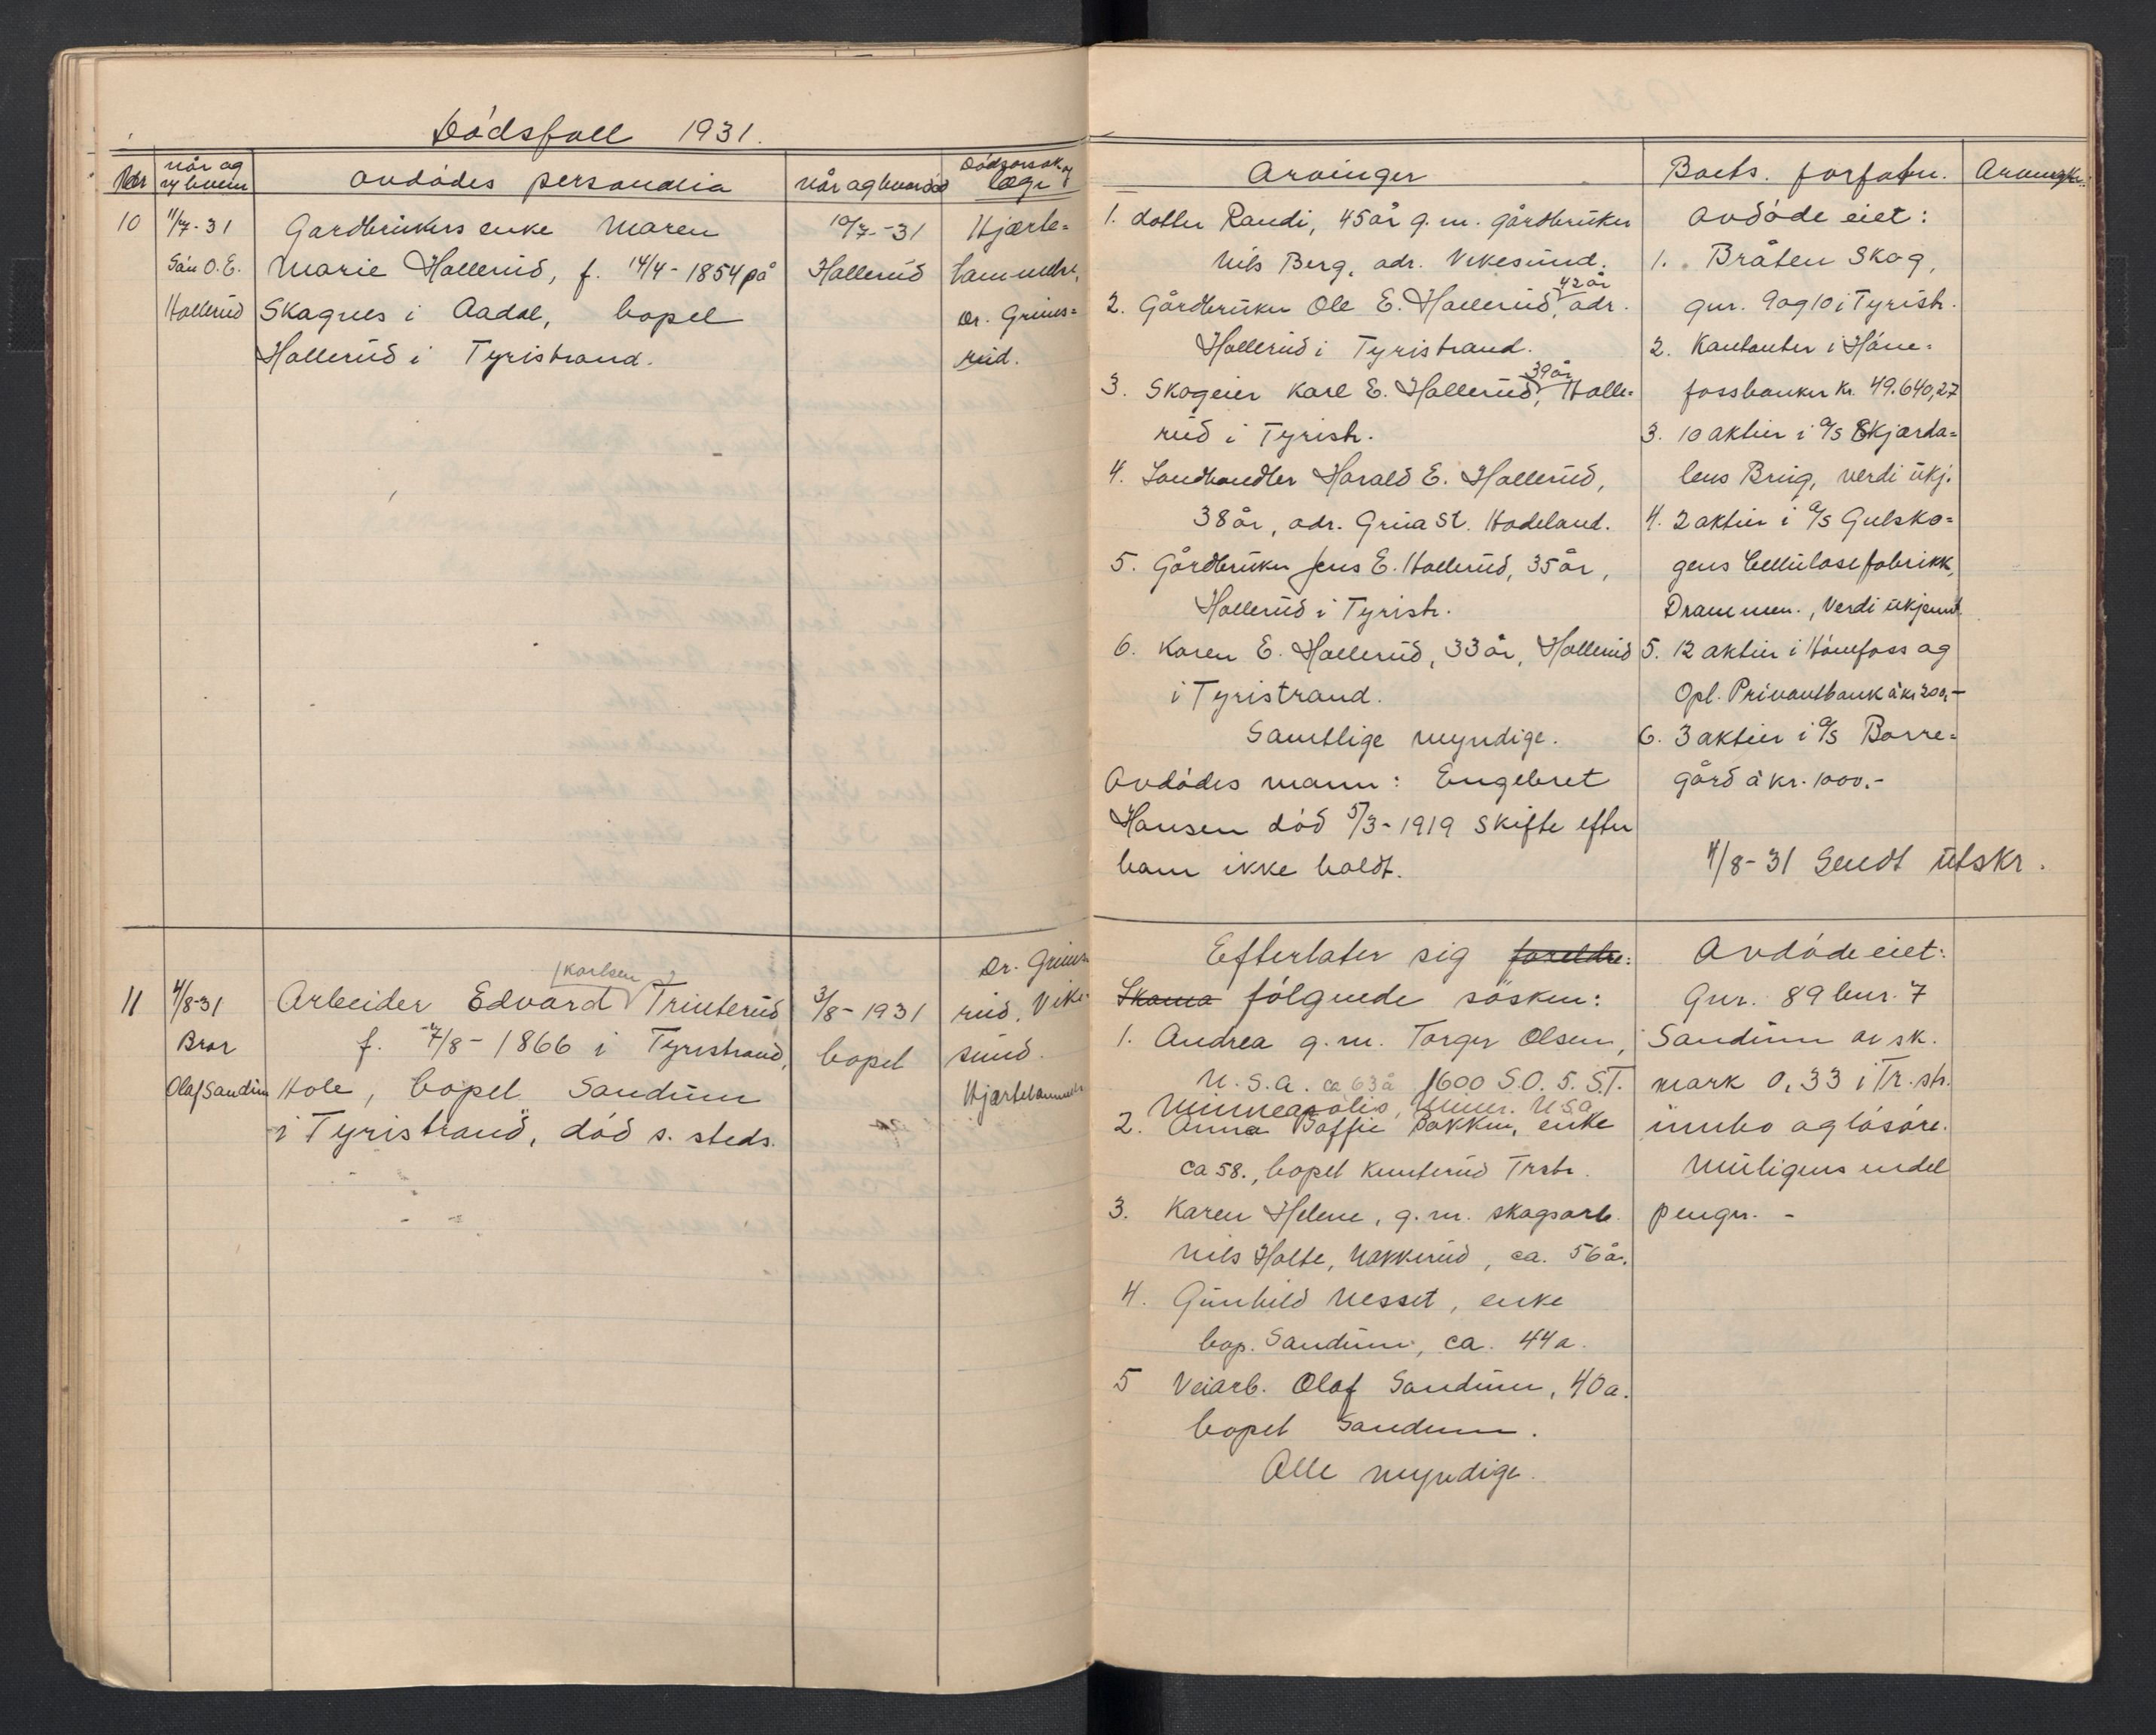 Dödsfall 1931.
Når og
av hvem
avdödes personalia
når og hvor död
Dödsorsak og
læge
10
11/7-31
Gardbrukers enke Maren
10/7-31
Hjærte-
Sön O.E.
Marie Hallerud, f. 14/4-1854 på
Hallerud
lammelse,
Hallerud
Skagnes i Aadal, bopel
Dr. Grims-
Hallerud i Tyristrand.
rud.
11
4/8-31
Arbeider Edvard Karlsen Trinterud
3/8-1931
Dr. Grims-
rud, Vike-
Bror
f. 7/8-1866 i Tyristrand,
bopel
sund.
Olaf Sandum
Hole, bopel Sandum
Hjertelammelse
i Tyristrand, död s. steds.
Arvinger
1. datter Randi, 45 år g.m. gårdbruker
Nils Berg, adr. Vikesund.
2. Gårdbruker Ole E. Hallerud, 42 år adr.
Hallerud i Tyristrand.
3. Skogeier Karl E. Hallerud, 39 år Halle-
rud i Tyristr.
4. Landhandler Harald E. Hallerud,
38 år, adr. Grua St. Hadeland.
5. Gårdbruker Jens E. Hallerud, 35 år,
Hallerud i Tyristr.
6. Karen E. Hallerud, 33 år, Hallerud
i Tyristrand.
Samtlige myndige.
Avdödes mann: Engebret
Hansen död 5/3-1919 Skifte efter
ham ikke holdt.
Efterlater sig foreldre:
fölgende sösken:
1. Andrea g.m. Torger Olsen,
U.S.A. ca 63 å 1600 S.O. 5. ST.
Minneapolis, Minn. U.S.A
2. Anna Bakken, enke
ca 58., bopel Trstr.
3. Karen Helene, g.m. skogsarb.
Nils Holte, Nakkerud, ca. 56 å.
4. Gunhild Nesset, enke
bop. Sandum, ca. 44 a.
5 Veiarb. Olaf Sandum, 40 a.
bopel Sandum.
Alle myndige.
Boets. forfatn.
Avdöde eiet:
1. Bråten Skog,
gnr. 9 og 10 i Tyristr.
2. Kontanter i Höne-
fossbanker kr. 49.640,27
3. 10 aktier i A/S Skjærda-
lens Brug, verdi ukj.
4. 2 aktier i A/S Gulsko-
gens Cellulosefabrikk,
Drammen., Verdi ukjennt.
5. 12 aktier i Hönefoss og
Opl. Privantbank à kr 200,-
6. 3 aktier i A/S Borre-
gård à kr. 1000.-
4/8-31 Sendt utskr.
Avdöde eiet:
Gnr. 89 bnr. 7
Sandum av sk.
mark 0,33 i Tr. str.
innbo og lösöre.
Muligens endel
penger. -